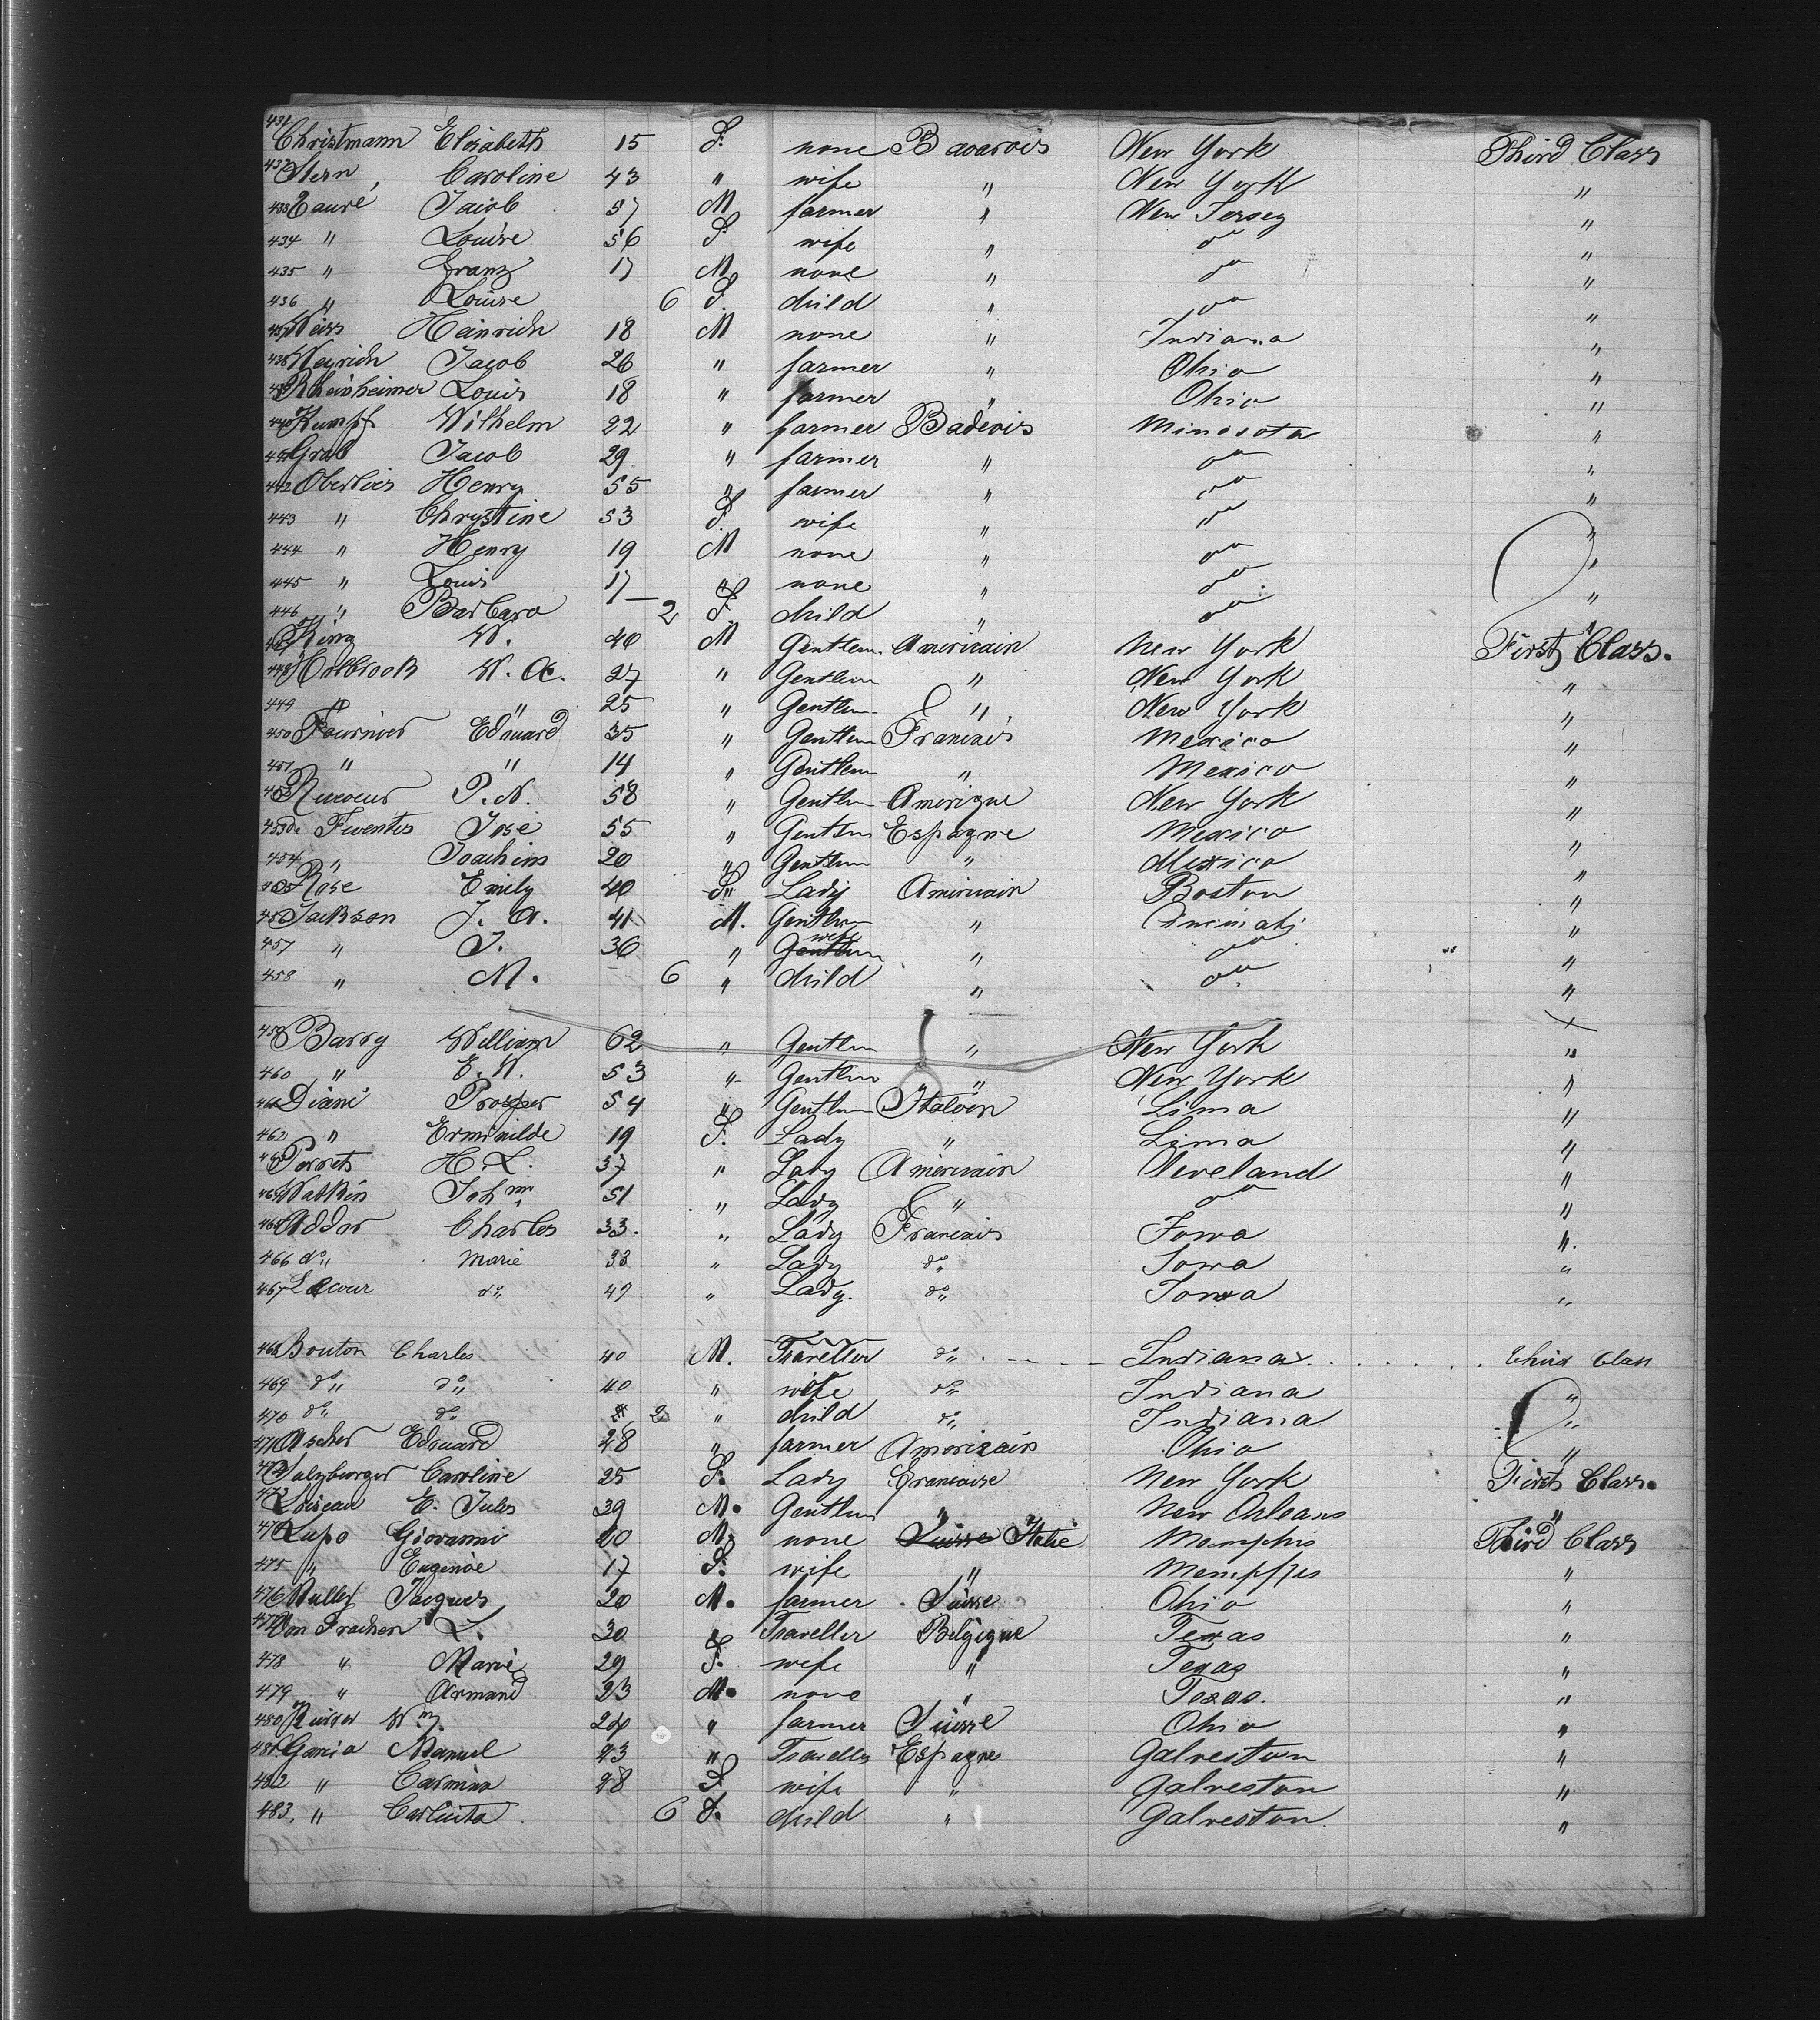 431 Christmann Elisabeth 15 F. none Bavarois New York Third Class
432 Stern, Caroline 43 " wife " New York "
433 Jacob 57 M farmer " New Jersey "
434 " Louise 56 F wife " do "
435 " Franz 17 M none " do "
436 " Louise 6 F. child " do "
437 Weiss Heinrich 18 M none " Indiana "
438 Weyrich Jacob 26 " farmer " Ohio "
439 Rheinheimer Louis 18 " farmer " Ohio "
440 Kumpf Wilhelm 22 " farmer Badeois Minosota "
441 Grab Jacob 29 " farmer " do "
442 Oberlies Henry 55 " farmer " do "
443 " Chrystine 53 F. wife " do "
444 " Henry 19 M none " do "
445 " Louis 17 " none " do "
446 " Barbara 2 F. child " do "
447 King W. 40 M Gentlem. Americain New York First Class.
448 Holbrook W. A. 27 " Gentlem " New York "
449 " " 25 " Gentlm " New York "
450 Fournier Edouard 35 " Gentlem Francais Mexico "
451 " " 14 " Gentlem " Mexico "
452 P. N. 58 " Gentlm Amerique New York "
453 de Fuentes José 55 " Gentlm Espagne Mexico "
454 " Joachim 20 " Gentlm " Mexico "
455 Rose Emily 40 F. Lady Americain Boston "
456 Jackson J. A. 41 M. Gentlm " Cincinati "
457 " J. 36 " wife " do "
458 " M. 6 " child " do "
459 Barry William 62 " Gentlm " New York "
460 " E. W. 53 " Gentlm " New York "
461 Diani Prosper 54 " Gentlm Italien Lima "
462 " Erminilde 19 F. Lady " Lima "
463 Perrets H. L. 37 " Lady Americain Cleveland "
464 Watkin Johnn 51 " Lady " do "
465 Addor Charles 33. " Lady Francais Iowa "
466 do " Marie 33 " Lady do Iowa "
467 Lacour do " 47 " Lady. do Iowa "
468 Bouton Charles 40 M. Traveller do " Indiana Third Class
469 do " do " 40 " wife do " Indiana "
470 do " do " 2 " child do " Indiana "
471 Ascher Edouard 28 " farmer Americain Ohio "
472 Salzburger Caroline 25 F. Lady Francaise New York First Class.
473 Loiseau E. Jules 39 M. Gentlm " New Orleans "
474 Lupo Giovanni 20 M. none Suisse Italie Memphis Third Class
475 " Eugenie 17 F. wife " Memphis "
476 Muller Jacques 20 M. farmer Suisse Ohio "
477 Von Frachen L. 30 " Traveller Belgique Texas "
478 " Marie 29 F. wife " Texas "
479 " Armand 23 M. none " Texas. "
480 Wm. 24 " farmer Suisse Ohio "
481 Garcia Manuel 43 " Traveller Espagne Galveston "
482 " Carmina 28 F wife " Galveston "
483. " Carlicita 6 F. child " Galveston. "